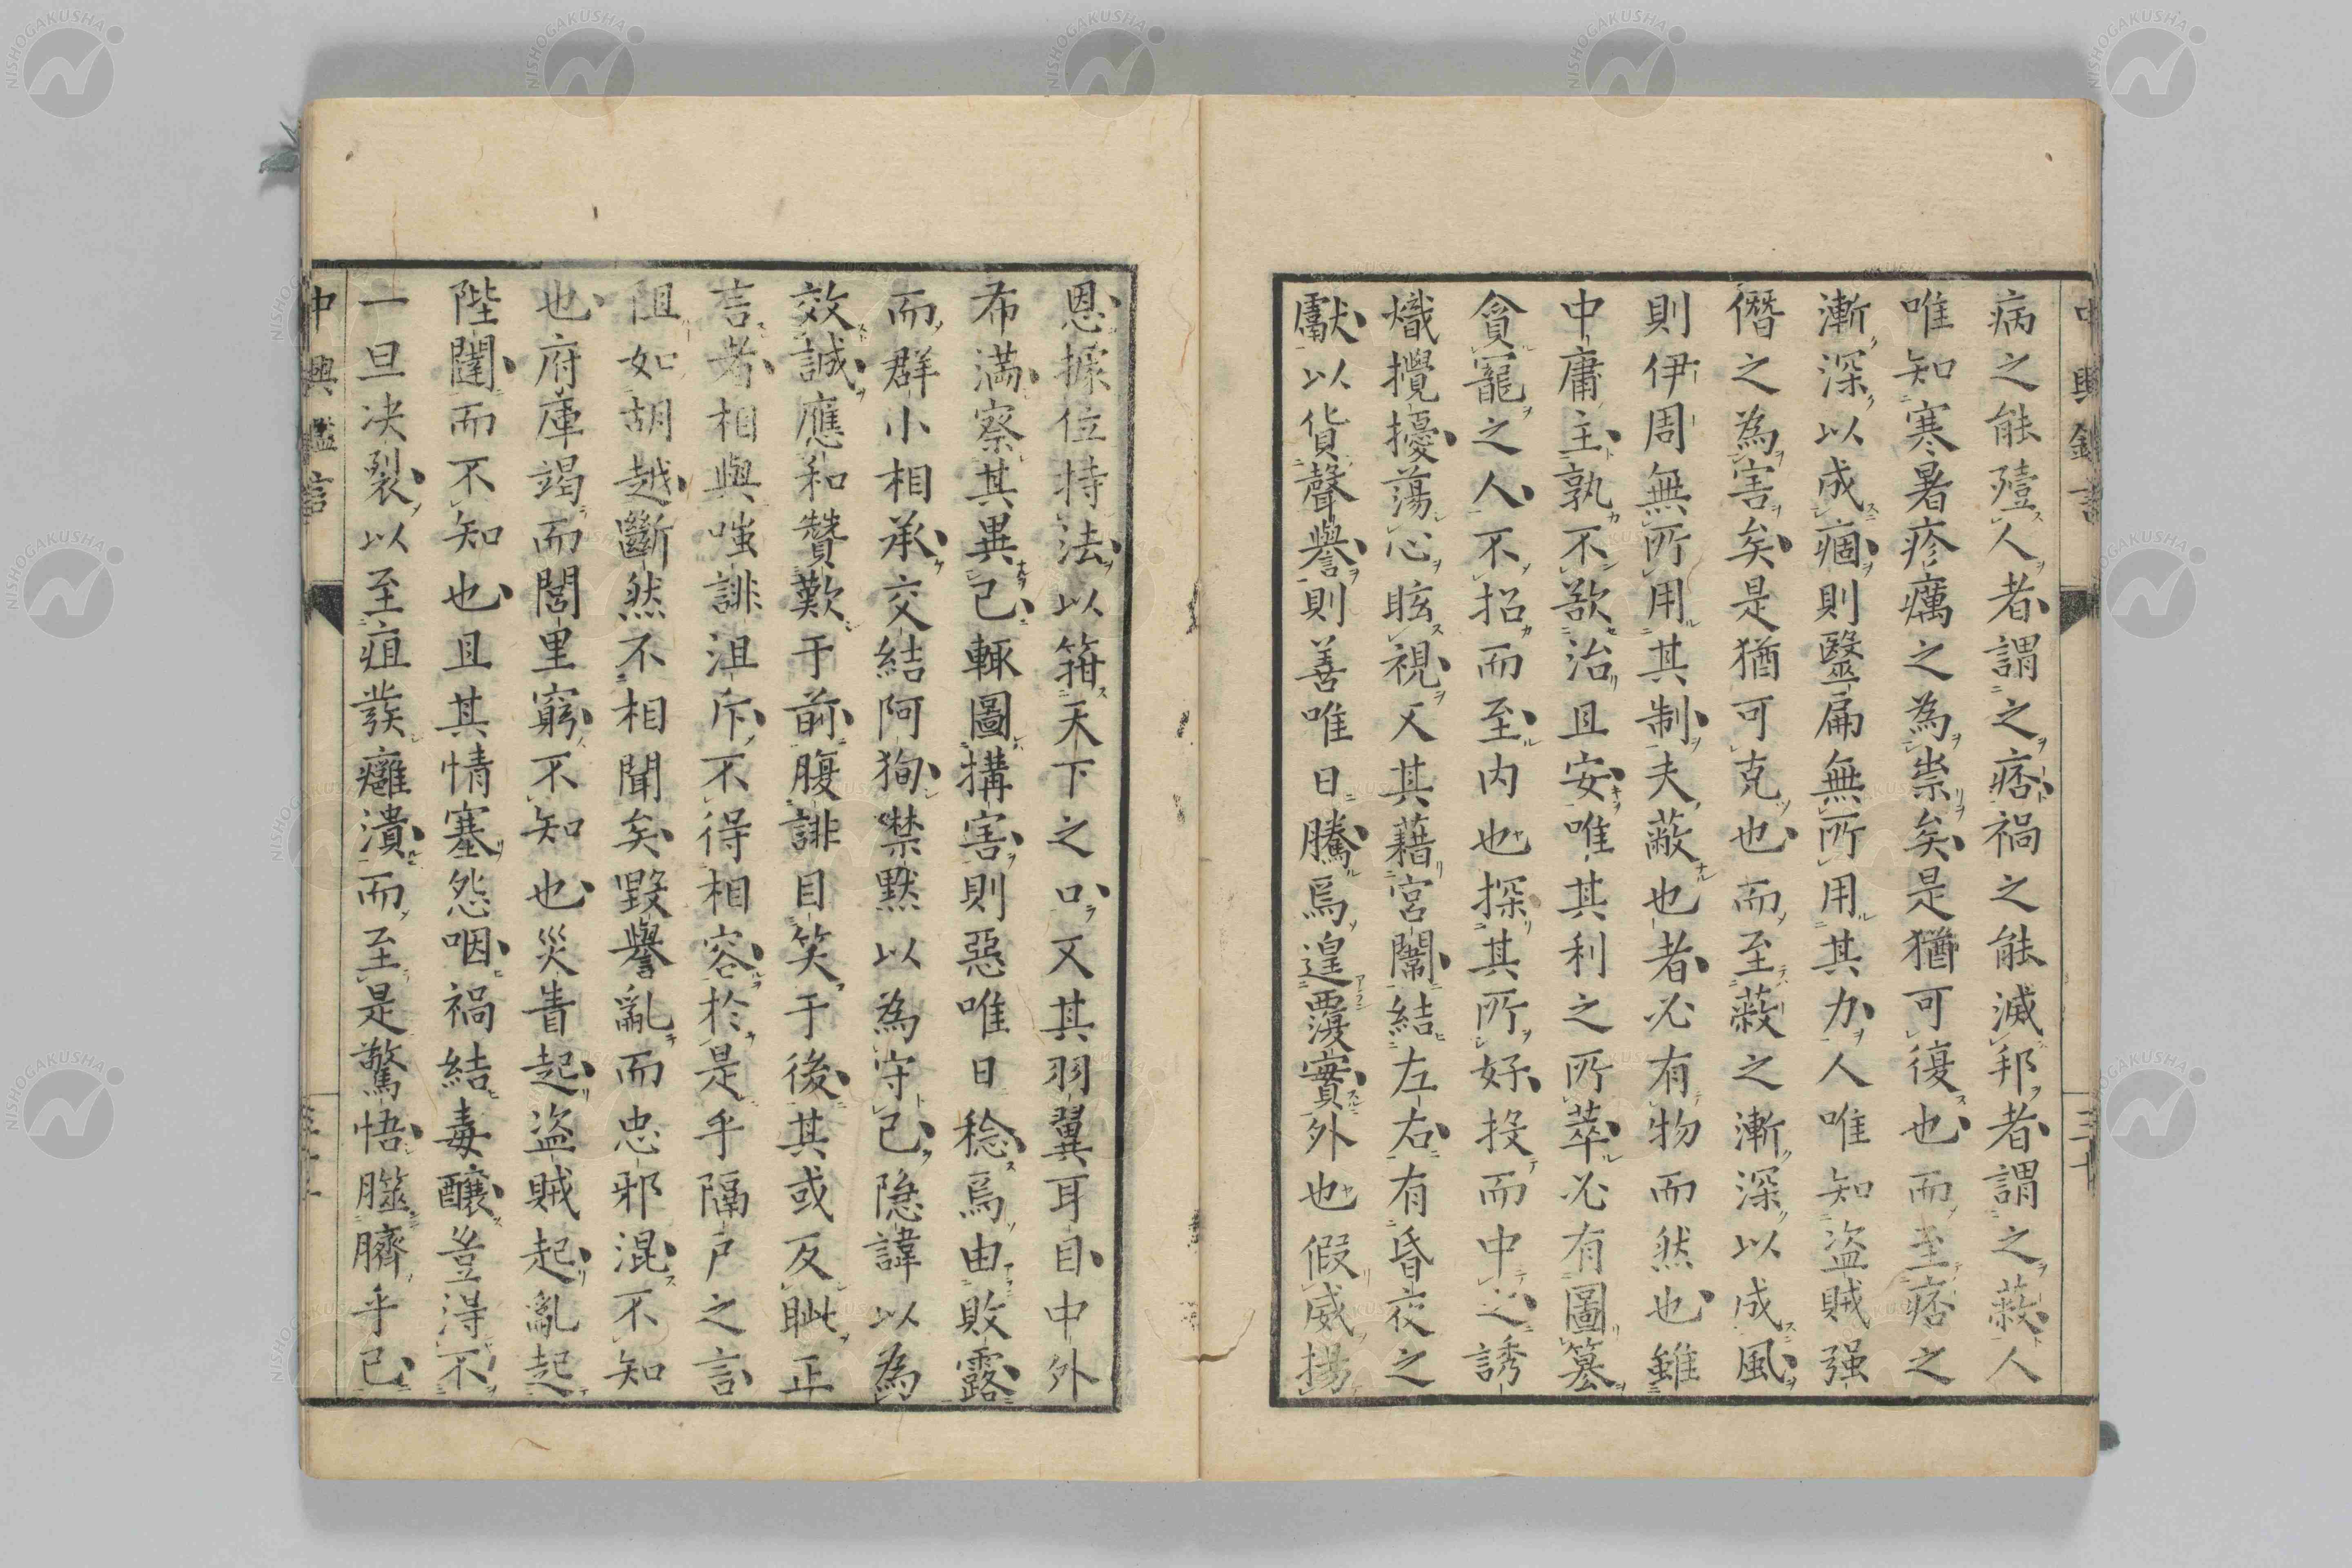 病之能殪人者謂之痞禍之能滅邦者謂之蔽人
唯知寒暑疹癘之為祟矣是猶可復也而至痞之
漸深以成痼則醫扁無所用其力人唯知盜賊强
僭之為害矣是猶可克也而至蔽之漸深以成風
則伊周無所用其制夫蔽也者必有物而然也雖
中庸主孰不欲治且安唯其利之所萃必有圖篡
貪寵之人不招而至内也探其所好投而中之誘
熾攪擾蕩心眩視又其藉宮闈結左右有昏夜之
獻以貨聲譽則善唯日騰焉遑覆實外也假威揚
恩據位持法以箝天下之口又其羽翼耳目中外
布満察其異己輒圖構害則惡唯日稔焉由敗露
而群小相承交結阿狥噤默以為守己隐諱以為
效誠應和贊歎于前腹誹目笑于後其或反眦正
言者相與嗤誹沮斥不得相容於是乎隔戶之言
阻如胡越斷然不相聞矣毀譽亂而忠邪混不知
也府庫竭而閭里窮不知也災眚起盜賊起亂起
陛闥而不知也且其情塞怨咽禍結毒釀豈得不
一旦决裂以至疽發癰潰而至是驚悟臍乎已
中興鑑言
NISHOGAKUSHA